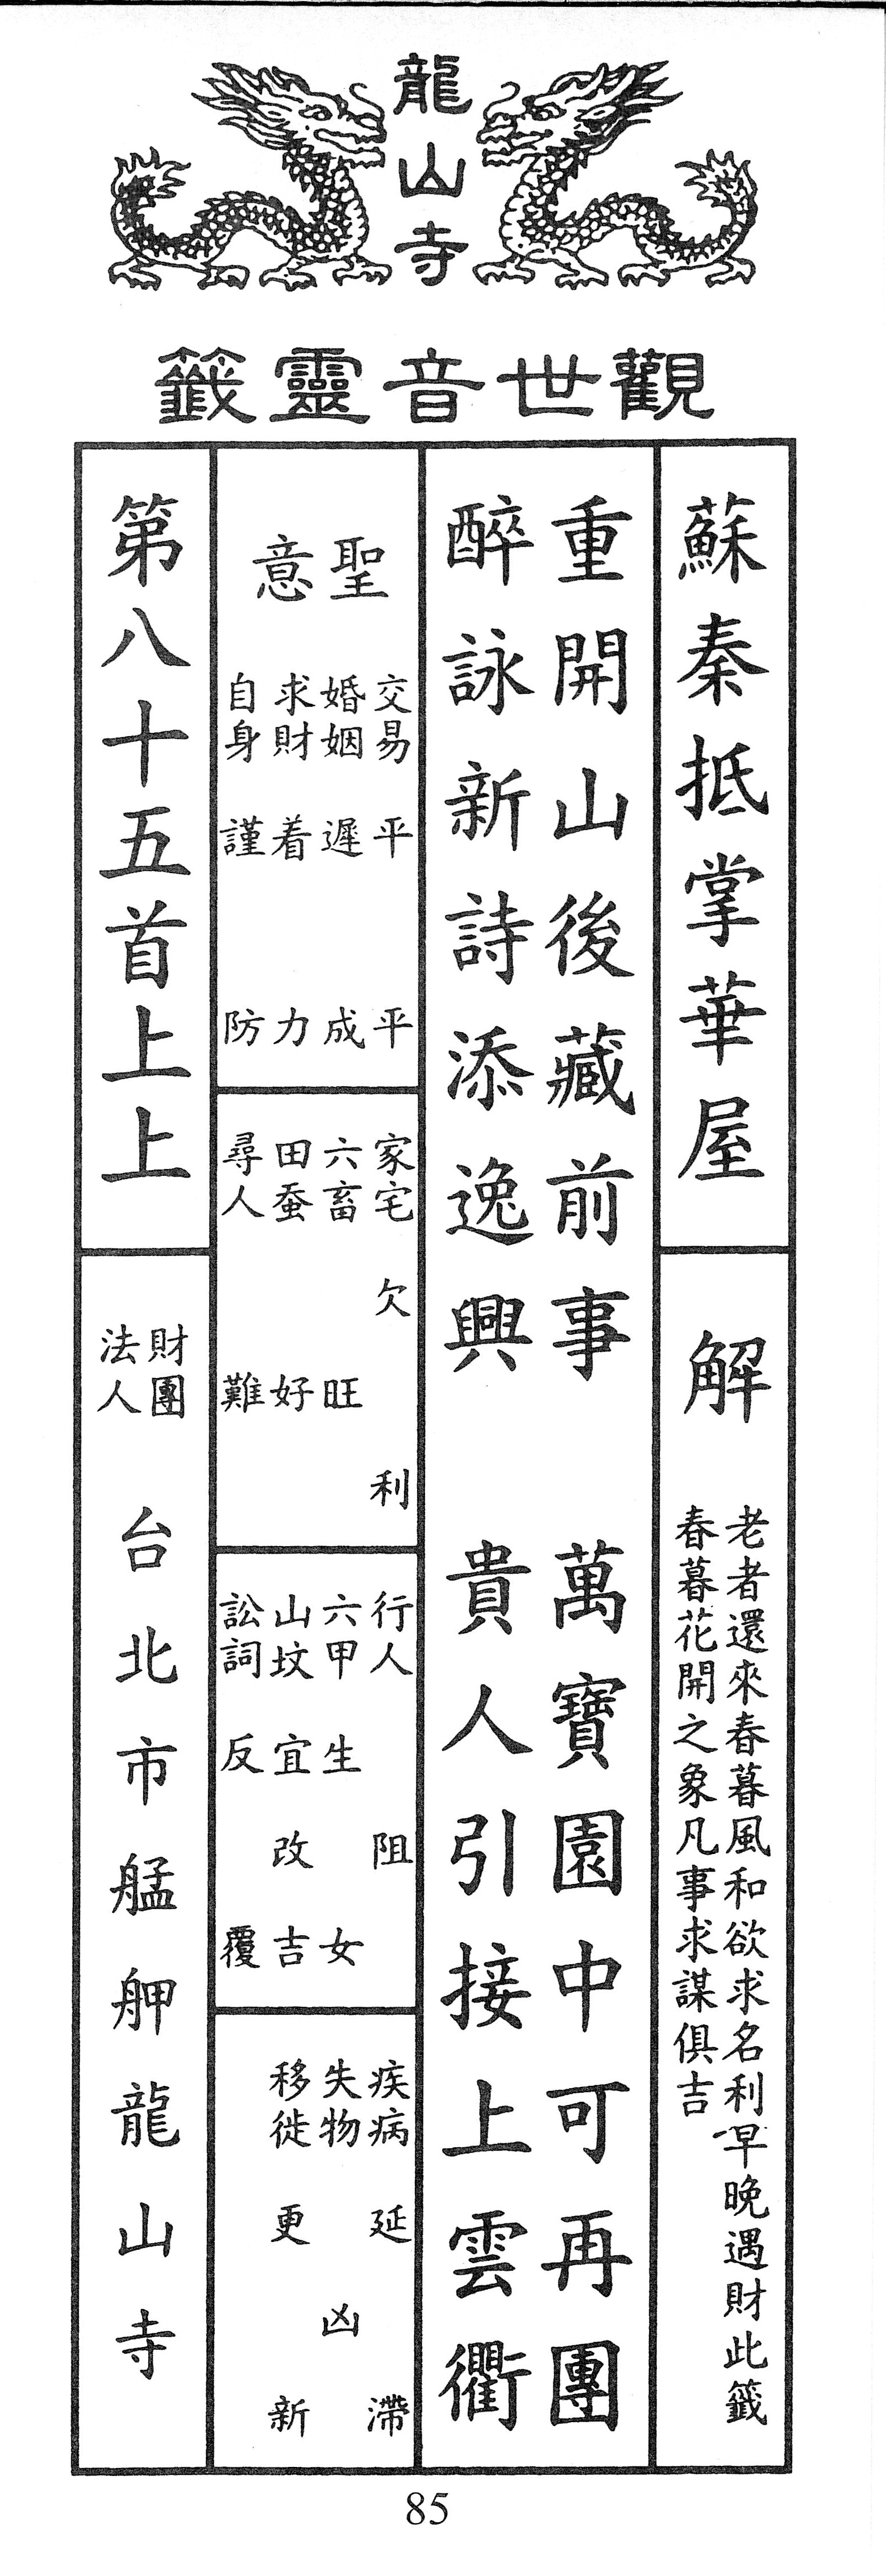 龍山寺
觀世音靈籤
蘇秦抵掌華屋
解
老者還來春暮風和欲求名利早晚遇財此籤
春暮花開之象凡事求謀俱吉
重開山後藏前事
萬寶園中可再團
醉詠新詩添逸興
貴人引接上雲衢
聖意
交易 平平
婚姻 遲成
求財 着力
自身 謹防
家宅 欠利
六畜 旺
田蚕 好
尋人 難
行人 阻
六甲 生女
山坟 宜改吉
訟詞 反覆
疾病 延滯
失物 凶
移徙 更新
第八十五首上上
財團
法人
台北市艋舺龍山寺
85